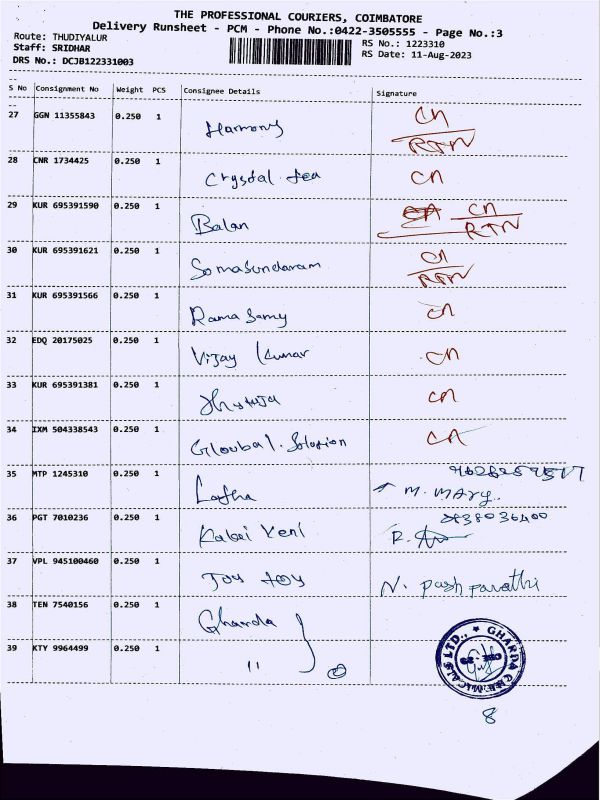 THE PROFESSIONAL COURIERS, COIMBATORE
Delivery Runsheet - PCM - Phone No.:0422-3505555 - Page No.:3
Route: THUDIYALUR
Staff: SRIDHAR
DRS No.: DCJB122331003
RS No.: 1223310
RS Date: 11-Aug-2023
S No Consignment No Weight PCS Consignee Details Signature
27 GGN 11355843 0.250 1 Harmony CN
RTN
28 CNR 1734425 0.250 1 Crystal tea CN
29 KUR 695391590 0.250 1 Balan CN
RTN
30 KUR 695391621 0.250 1 Somasundaram CN
RTN
31 KUR 695391566 0.250 1 Rama Samy CN
32 EDQ 20175025 0.250 1 Vijay Kumar CN
33 KUR 695391381 0.250 1 CN
34 IXM 504338543 0.250 1 Gloubal. Solotion CN
35 MTP 1245310 0.250 1 Latha M. MARY.
36 PGT 7010236 0.250 1 Kalai Veni R.
37 VPL 945100460 0.250 1 Joy toy N. pushparathi
38 TEN 7540156 0.250 1 Gharda
39 KTY 9964499 0.250 1 " ②
GHARDA CHEMICALS LTD.,
8